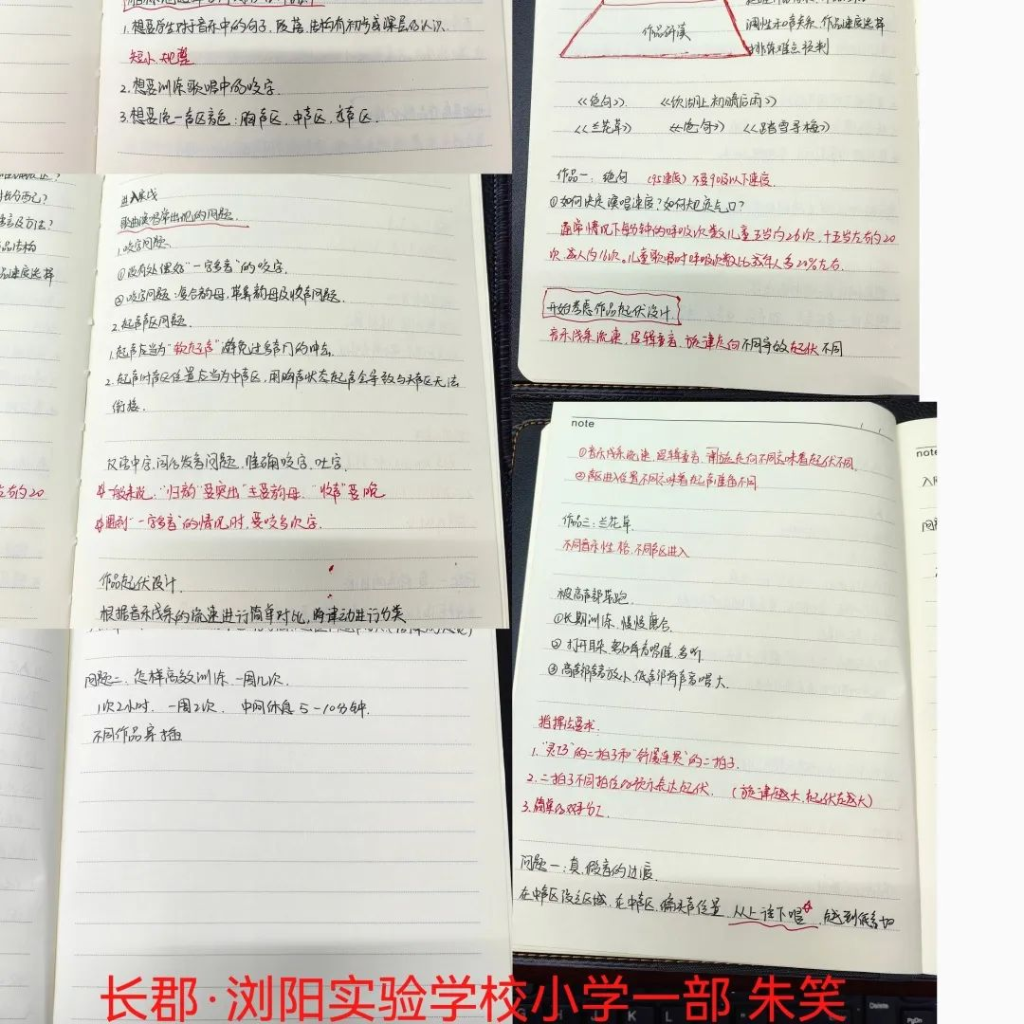 1.想要学生对于音乐中的句子、段落、结构有初步或深层的认识.
短小、规整
2.想要训练歌唱中的咬字.
3.想要统一声区音色:胸声区、中声区、头声区.
进入主线
歌曲演唱早出现的问题.
1.咬字问题.
①没有处理好“一字多音”的咬字.
②咬字问题:复合韵母,单鼻韵母及收声问题.
2.起声声区问题.
1.起声应当为“软起声”避免过多声门的冲击.
2.起声时声区位置应当为中声区,用胸声状态起声会导致与头声区无法
衔接.
汉语中字、词的发音问题,准确咬字、吐字.
一般来说:“归韵”要突出“主要韵母”“收声”要晚
遇到“一字多音”的情况时,要咬多次字.
作品起伏设计.
根据音乐线条的流速进行简单对比,两律动进行分类
问题二:怎样高效训练,一周几次.
1次2小时. 一周2次. 中间休息5-10分钟.
不同作品穿插
作品斜溪
调性和声关系.作品速度选择
排练难点预判
《绝句》 《饮湖上初晴后雨》
《兰花草》 《绝句》 《踏雪寻梅》
作品一:绝句 (95速度)不要90级以下速度.
①如何决定演唱速度?如何规定气口?
通常情况下每分钟的呼吸次数儿童五岁约26次,十五岁左右约20
次,成人约16次。儿童歌唱时呼吸次数比成年人多20%左右.
开始考虑作品起伏设计.
音乐线条流速、逻辑重音、旋律走向不同导致起伏不同
note
①音乐线条流速、逻辑重音、旋律走向不同意味着起伏不同.
②声区进入位置不同意味着起声准备不同
作品二:兰花草.
不同音乐性格,不同声区进入
被高声部带跑.
①长期训练,慢慢磨合.
③高声部声音放小,低声部声音唱大.
指挥法要求.
1.“灵巧”的二拍子和“舒缓连贯”的二拍子.
2.二拍子不同拍位的快示表达起伏. (旋律越大,起伏在越大)
3.简单的双手分工.
问题一:真、假音的过渡.
在中声区设立区域,在中声区,偏头声位置,从上往下唱
长郡·浏阳实验学校小学一部 朱笑
Delete
PgDn
K
L